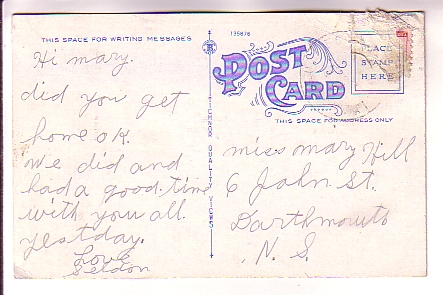 THIS SPACE FOR WRITING MESSAGES
Hi mary.
did you get
home ok.
we did and
had a good time
with you all.
yestday.
Love
Seldon
TICHNOR QUALITY VIEWS
135876
POST
CARD
THIS SPACE FOR ADDRESS ONLY
PLACE
STAMP
HERE
miss mary Hill
6 John St.
Darthmouth
N. S.